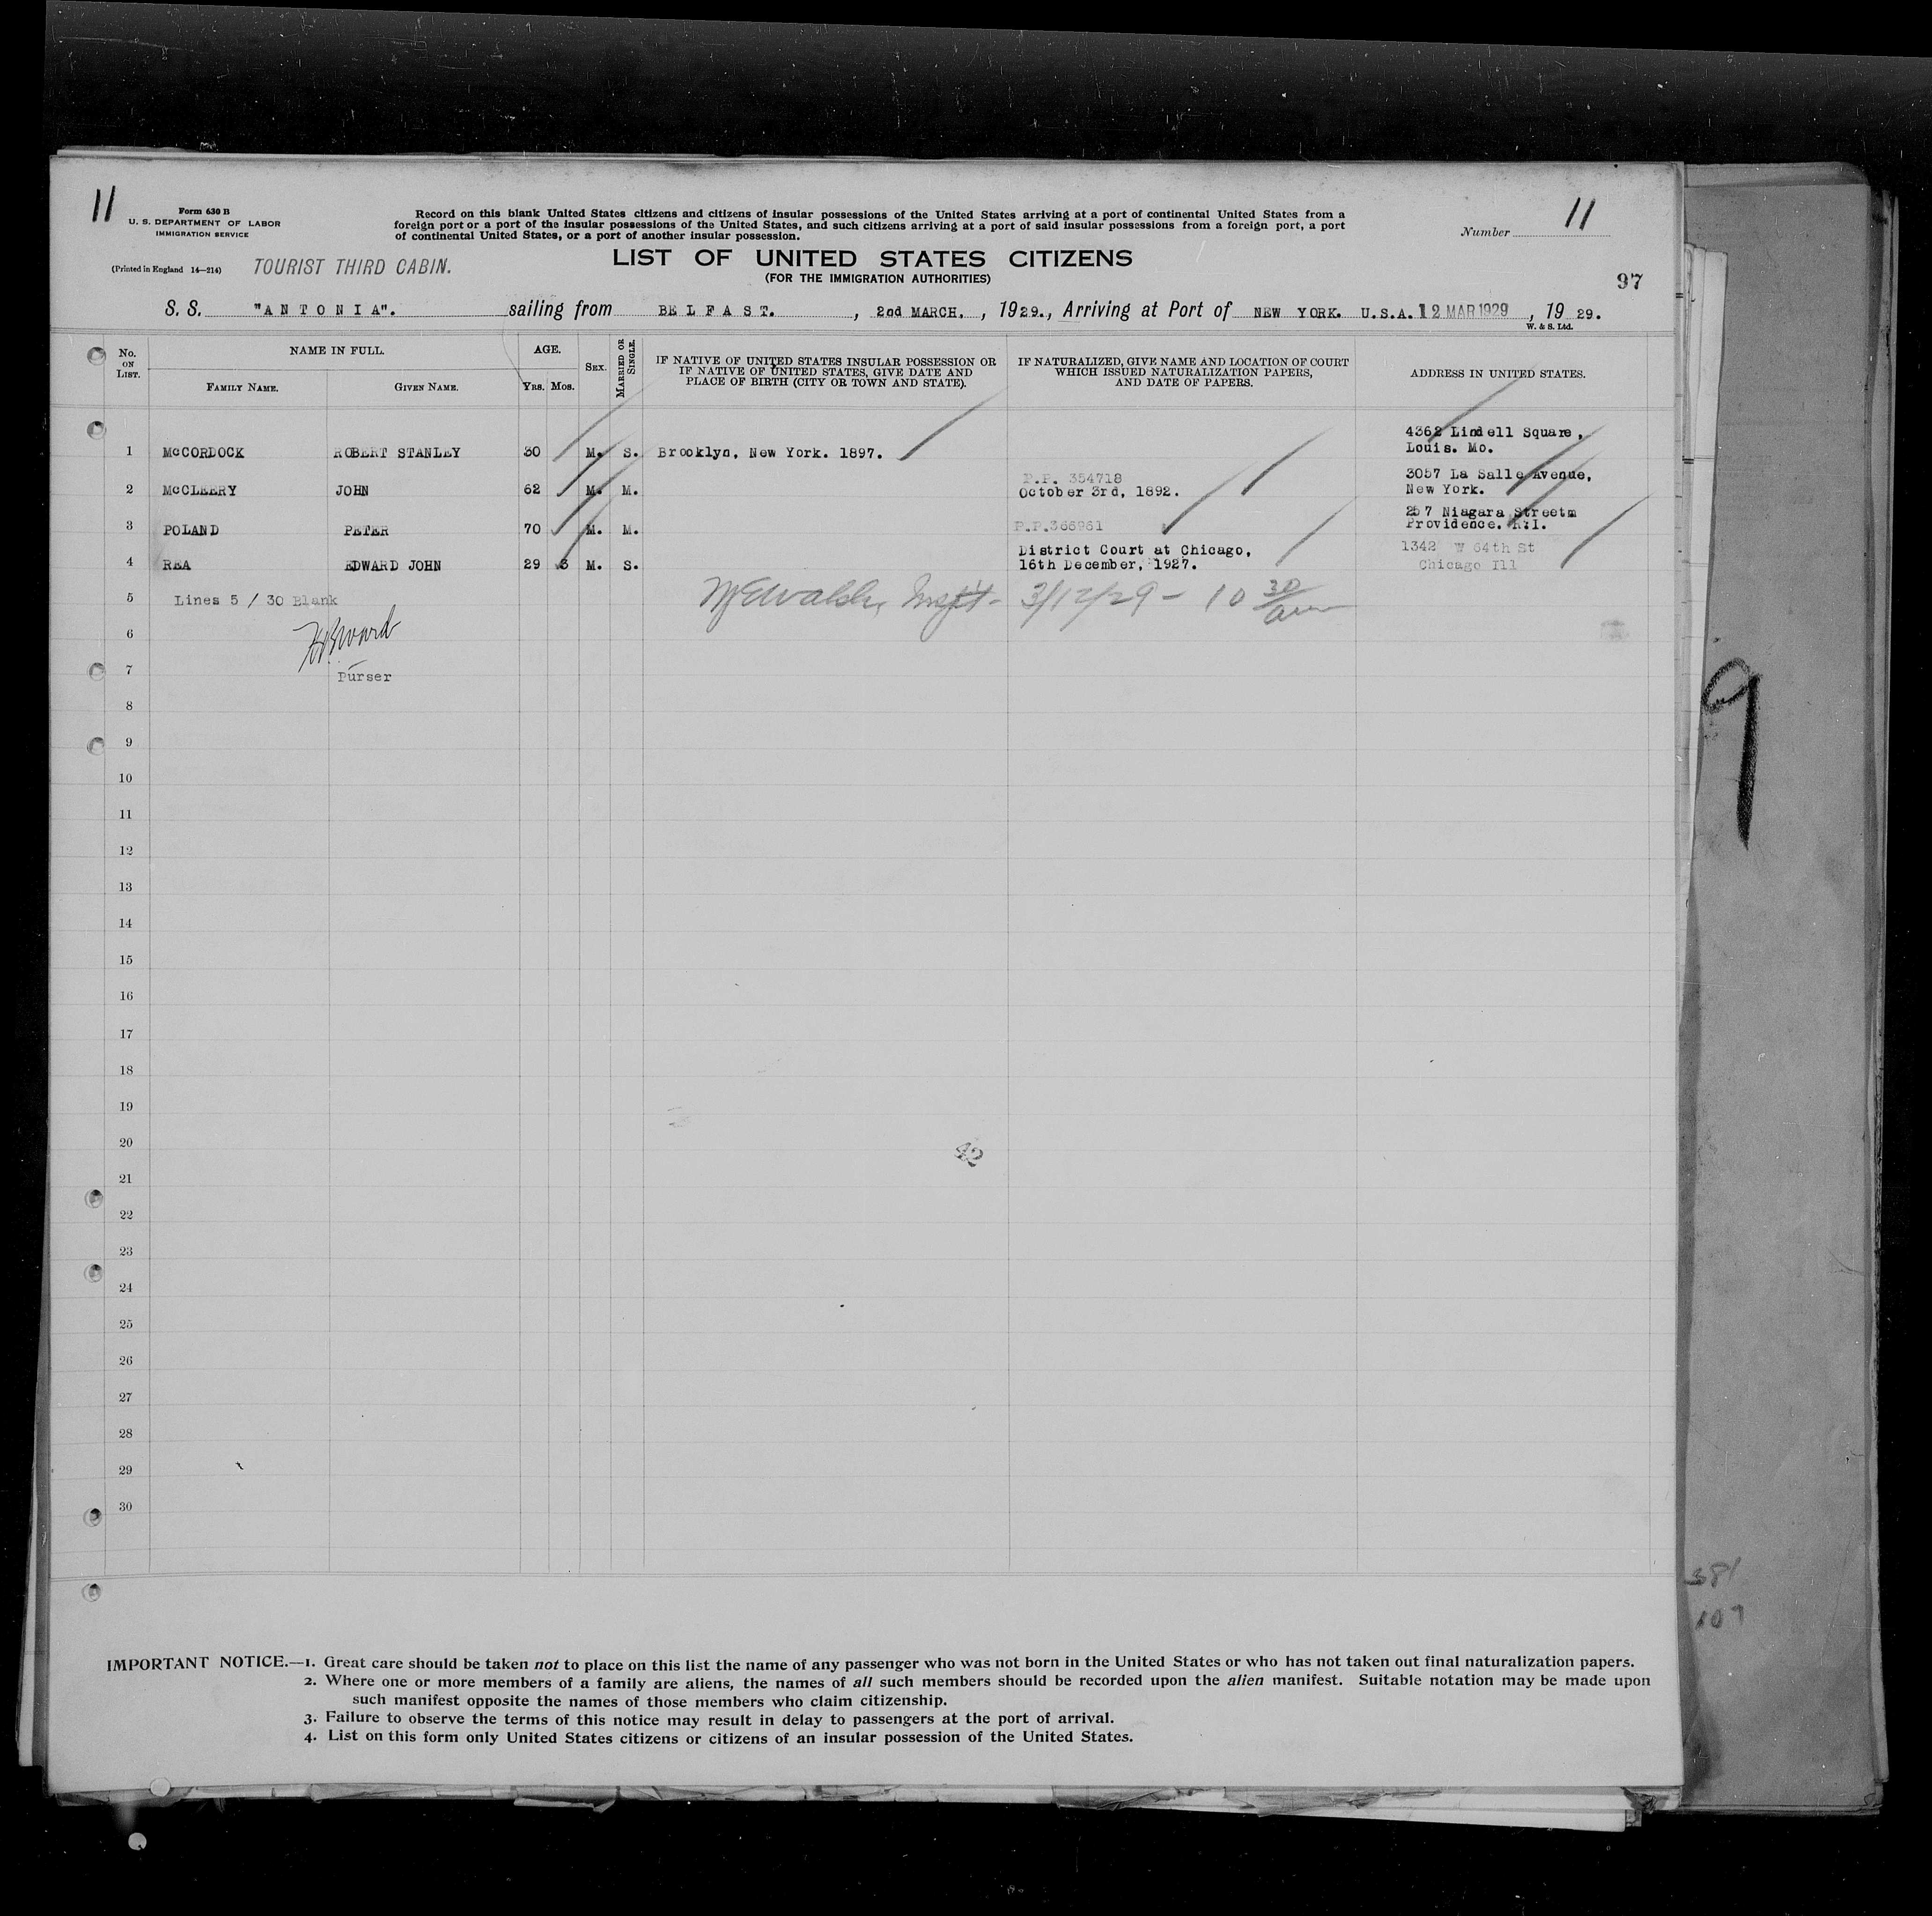 11
Form 630 B
U. S. DEPARTMENT OF LABOR
IMMIGRATION SERVICE
Record on this blank United States citizens and citizens of insular possessions of the United States arriving at a port of continental United States from a
foreign port or a port of the insular possessions of the United States, and such citizens arriving at a port of said insular possessions from a foreign port, a port
of continental United States, or a port of another insular possession.
Number 11
(Printed in England 14—214) TOURIST THIRD CABIN.
LIST OF UNITED STATES CITIZENS
(FOR THE IMMIGRATION AUTHORITIES)
97
S. S. "ANTONIA". sailing from BELFAST. , 2nd MARCH, , 1929., Arriving at Port of NEW YORK. U.S.A. 12 MAR 1929 , 19 29.
W. & S. Ltd.
No. ON LIST. NAME IN FULL. FAMILY NAME. GIVEN NAME. AGE. YRS. MOS. SEX. MARRIED OR SINGLE. IF NATIVE OF UNITED STATES INSULAR POSSESSION OR IF NATIVE OF UNITED STATES, GIVE DATE AND PLACE OF BIRTH (CITY OR TOWN AND STATE). IF NATURALIZED, GIVE NAME AND LOCATION OF COURT WHICH ISSUED NATURALIZATION PAPERS, AND DATE OF PAPERS. ADDRESS IN UNITED STATES.
1 McCORDOCK ROBERT STANLEY 30 M. S. Brooklyn, New York. 1897. 4362 Lindell Square, Louis. Mo.
2 McCLEERY JOHN 62 M. M. P.P. 354718 October 3rd, 1892. 3057 La Salle Avenue, New York.
3 POLAND PETER 70 M. M. P.P.366961 257 Niagara Streetm Providence. R.I.
4 REA EDWARD JOHN 29 3 M. S. District Court at Chicago, 16th December, 1927. 1342 W 64th St Chicago Ill
5 Lines 5 / 30 Blank 3/12/29 - 10 30/am
6
7 Purser
8
9
10
11
12
13
14
15
16
17
18
19
20
42
21
22
23
24
25
26
27
28
29
30
9
381
109
IMPORTANT NOTICE.—1. Great care should be taken not to place on this list the name of any passenger who was not born in the United States or who has not taken out final naturalization papers.
2. Where one or more members of a family are aliens, the names of all such members should be recorded upon the alien manifest. Suitable notation may be made upon
such manifest opposite the names of those members who claim citizenship.
3. Failure to observe the terms of this notice may result in delay to passengers at the port of arrival.
4. List on this form only United States citizens or citizens of an insular possession of the United States.